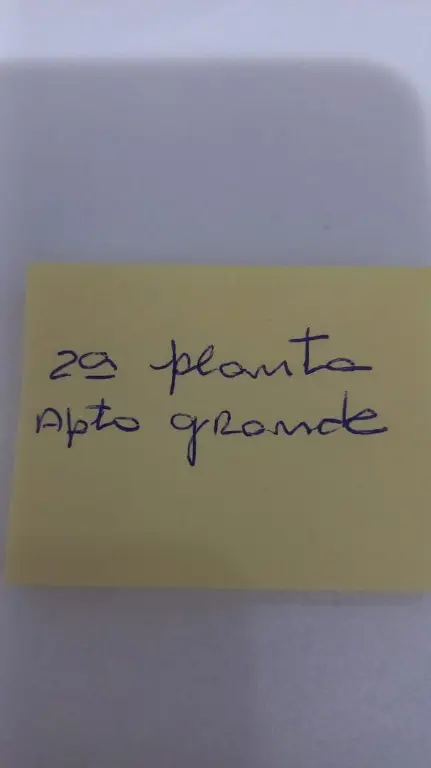 2ª planta
Apto grande